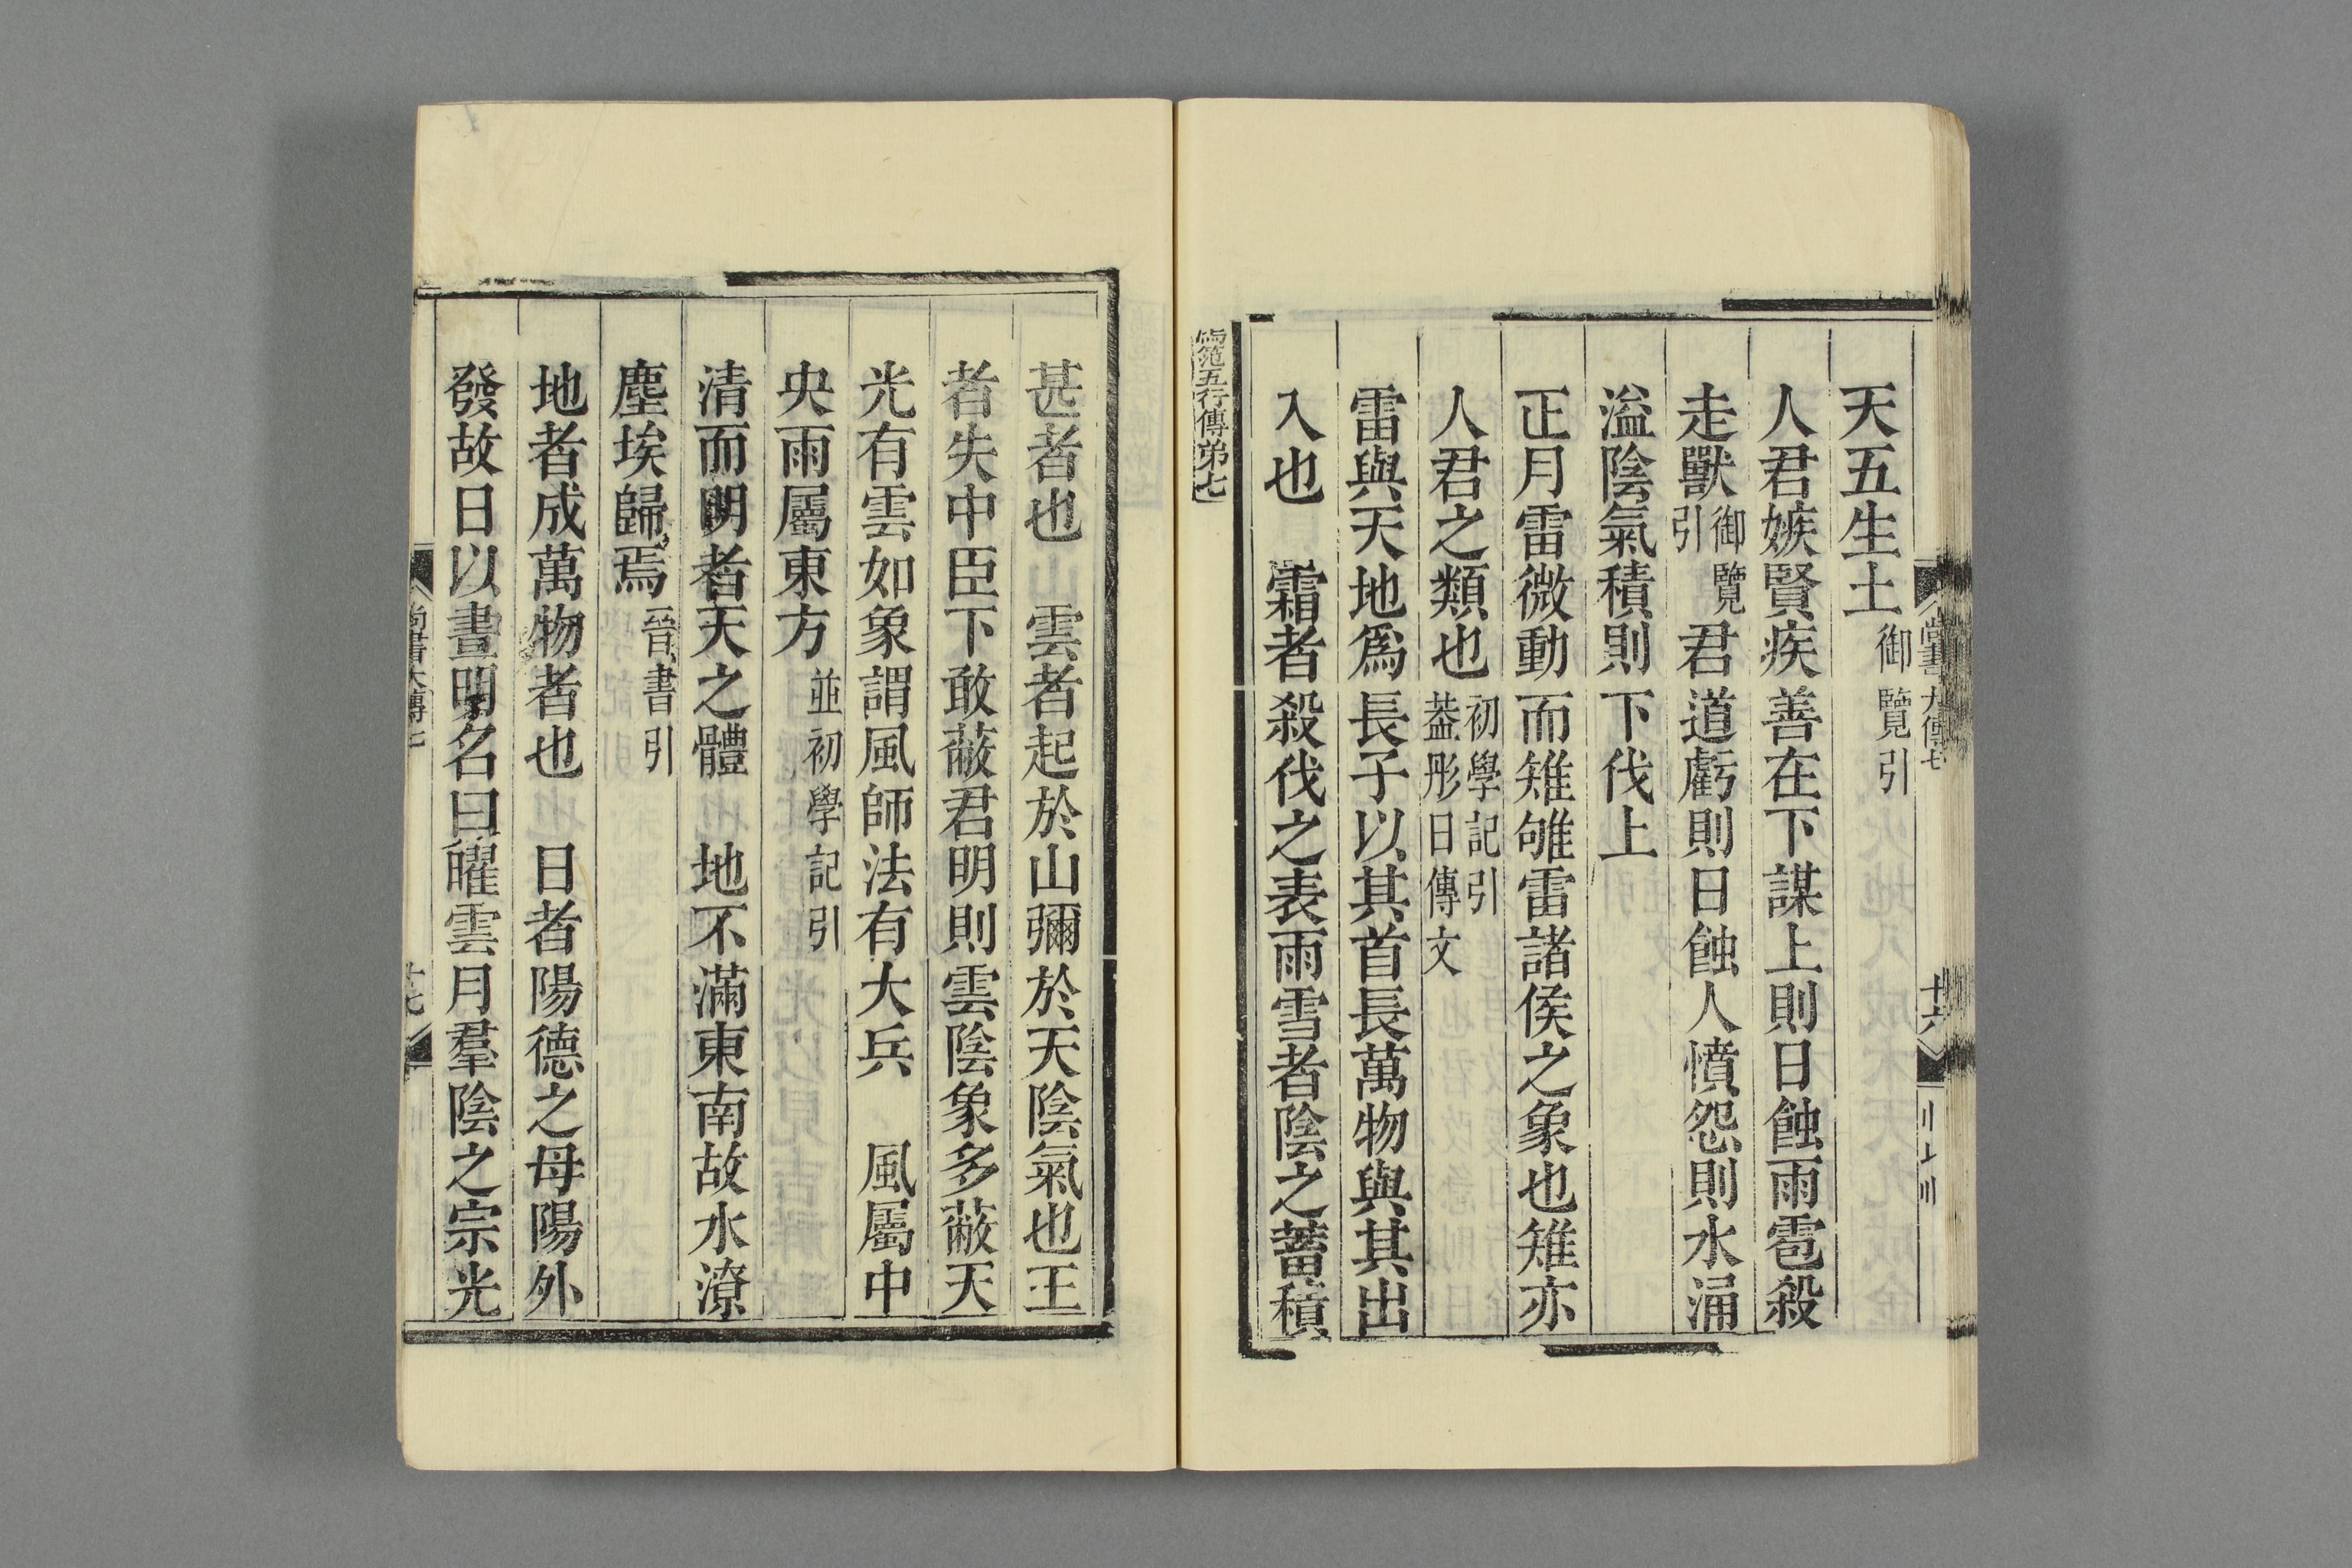 天五生土御覽引
人君嫉賢疾善在下謀上則日蝕雨雹殺
走獸御覽引君道虧則日蝕人憤怨則水涌
溢陰氣積則下伐上
正月雷微動而雉雊雷諸侯之象也雉亦
人君之類也初學記引葢肜日傳文
雷與天地爲長子以其首長萬物與其出
入也 霜者殺伐之表雨雪者陰之蓄積
範五行傳弟七
尚書大傳七
十六
甚者也 雲者起於山彌於天陰氣也王
者失中臣下敢蔽君明則雲陰象多蔽天
光有雲如象謂風師法有大兵 風屬中
央雨屬東方並初學記引
清而明者天之體 地不滿東南故水潦
塵埃歸焉晉書引
地者成萬物者也 日者陽德之母陽外
發故日以晝明名曰曜雲月羣陰之宗光
尚書大傳七
十七